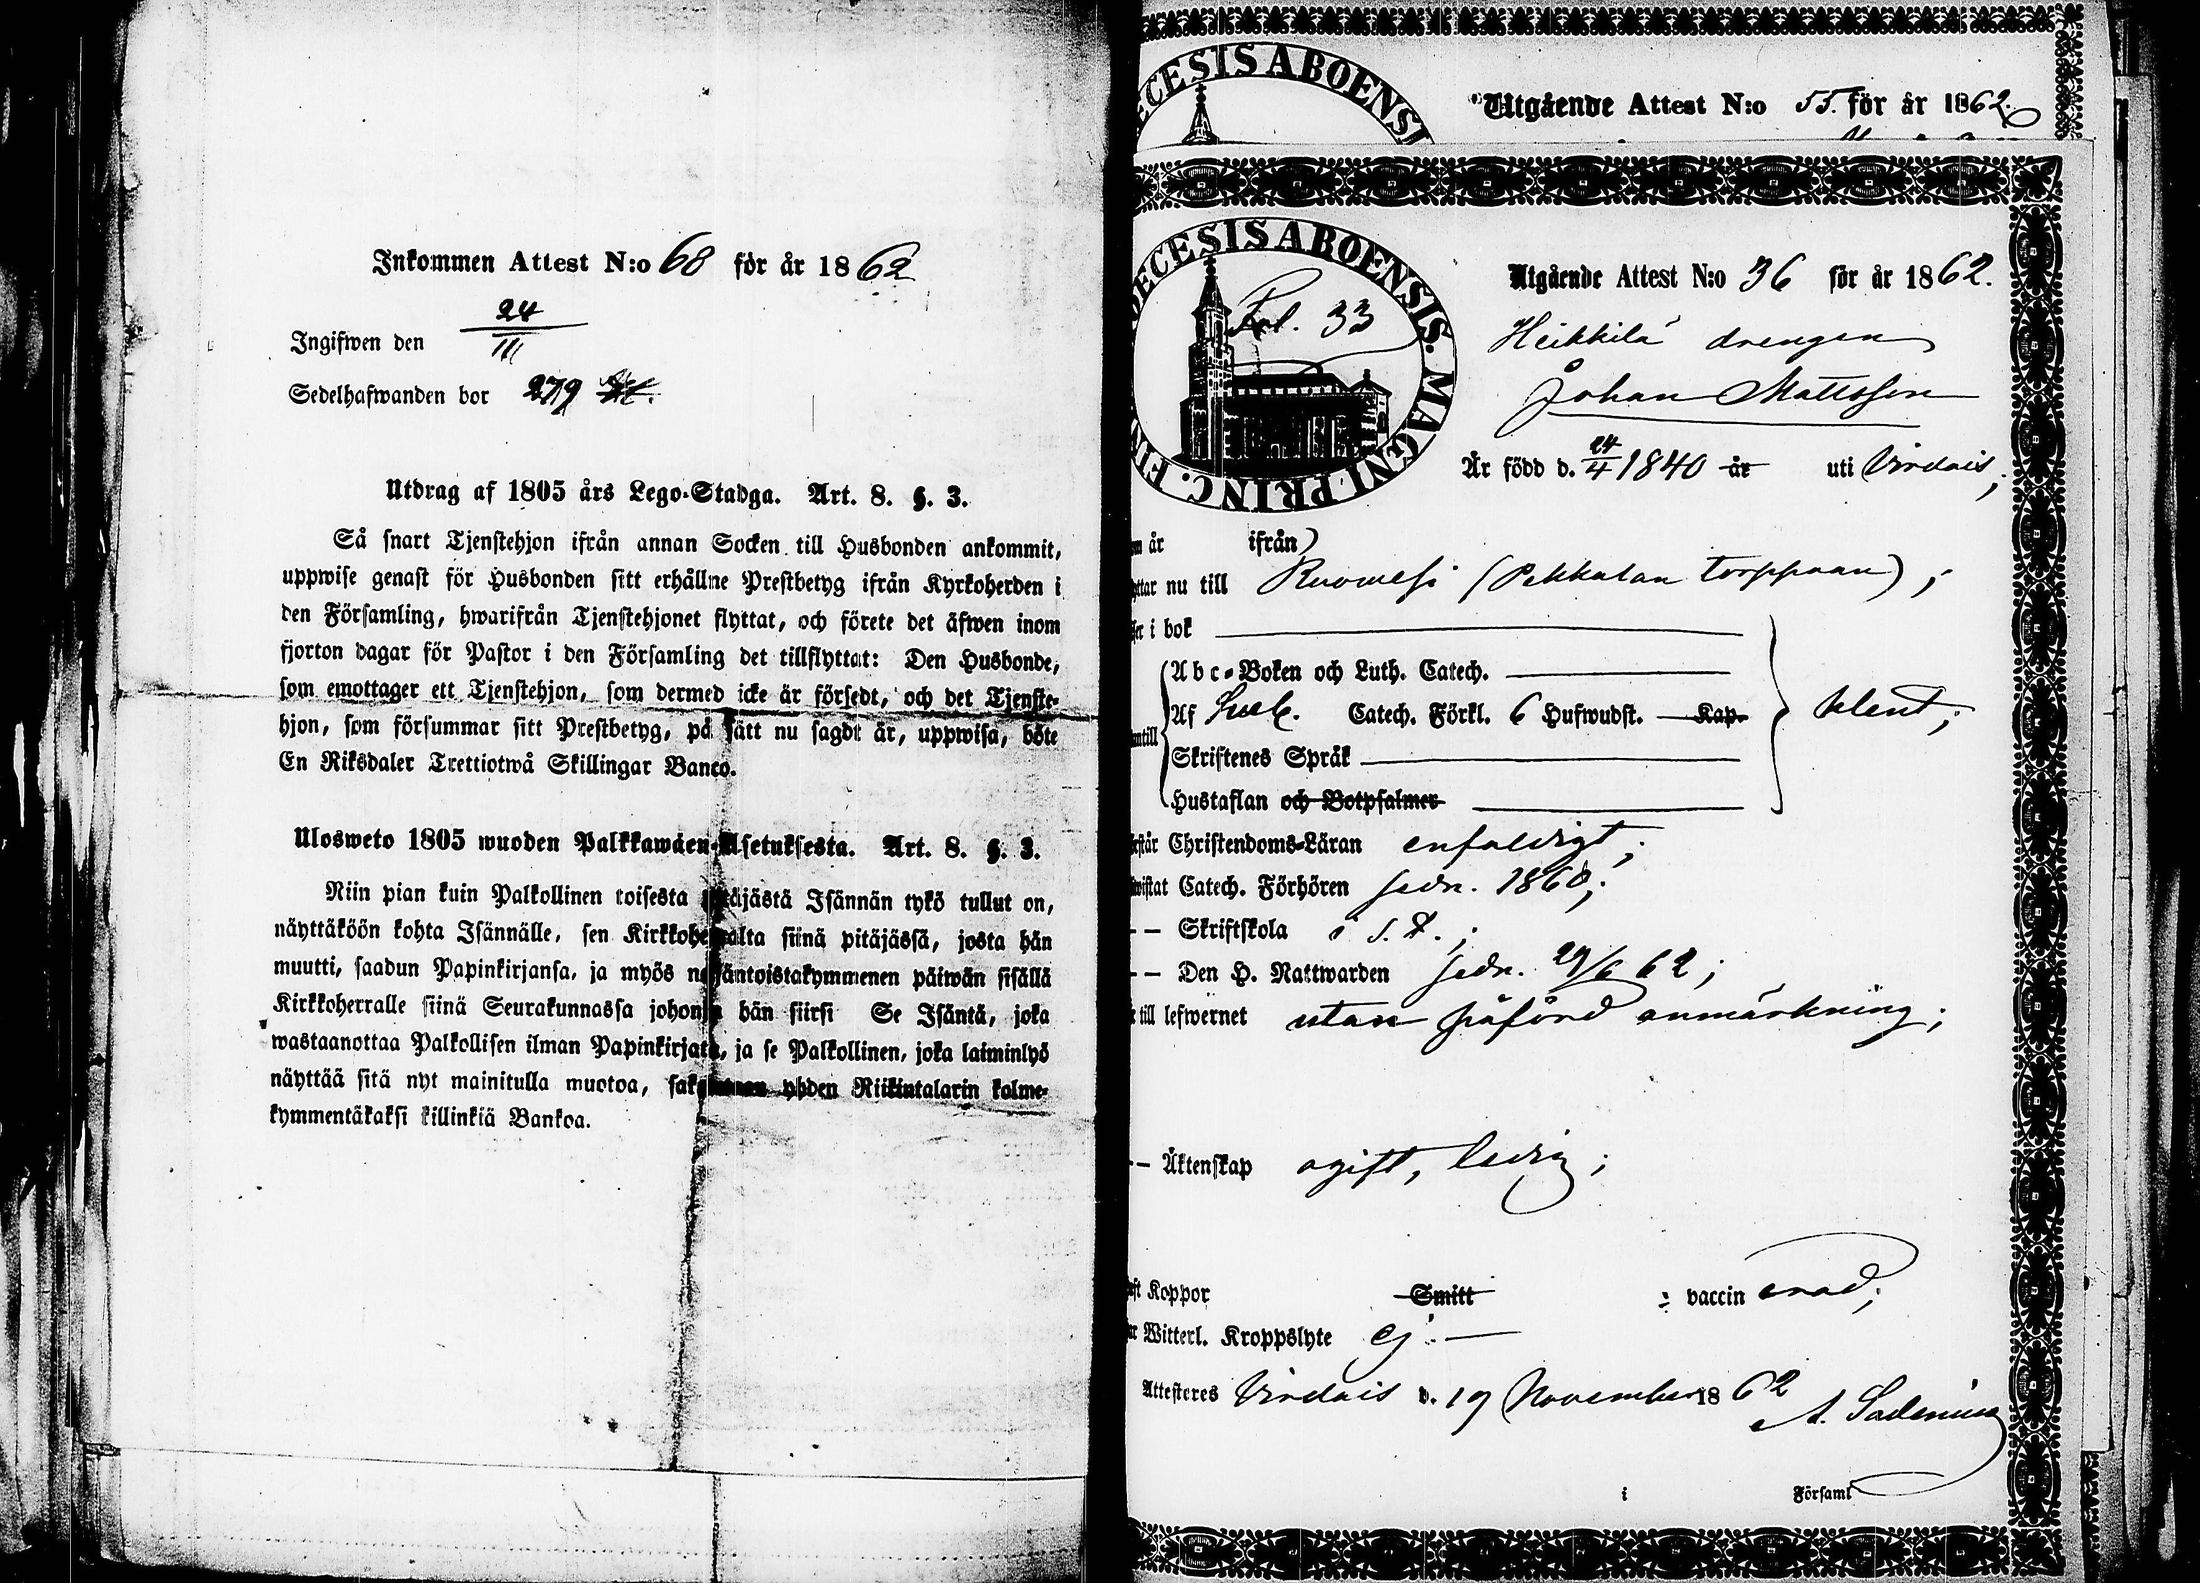 Inkommen Attest N:o 68 för år 1862
Ingifwen den 24/III
Sedelhafwanden bor 279
Utdrag af 1805 års Lego-Stadga. Art. 8. §. 3.
Så snart Tjenstehjon ifrån annan Socken till Husbonden ankommit,
uppwise genast för Husbonden sitt erhållne Prestbetyg ifrån Kyrkoherden i
den Församling, hwarifrån Tjenstehjonet flyttat, och förete det äfwen inom
fjorton dagar för Pastor i den Församling det tillflyttat: Den Husbonde,
som emottager ett Tjenstehjon, som dermed icke är försedt, och det Tjenste-
hjon, som försummar sitt Prestbetyg, på sätt nu sagdt är, uppwisa, böte
En Riksdaler Trettiotwå Skillingar Banco.
Ulosweto 1805 wuoden Palkkawäen-Asetuksesta. Art. 8. §. 3.
Niin pian kuin Palkollinen toisesta pitäjästä Isännän tykö tullut on,
näyttäköön kohta Isännälle, sen Kirkkoherralta siinä pitäjässä, josta hän
muutti, saadun Papinkirjansa, ja myös neljäntoistakymmenen päiwän sisällä
Kirkkoherralle siinä Seurakunnassa johonka hän siirsi Se Isäntä, joka
wastaanottaa Palkollisen ilman Papinkirjata, ja se Palkollinen, joka laiminlyö
näyttää sitä nyt mainitulla muotoa, yhden Riikintalarin kolme-
kymmentäkaksi killinkiä Bankoa.
ECESIS ABOENSI
Utgående Attest N:o 55. för år 1862.
OECESIS ABOENSIS. MAGNI PRINC. FIN
Fol. 33
Utgående Attest N:o 36 för år 1862.
Heikkilä drengen
Johan Mattsson
Är född d. 24/4 1840 år uti Virdois,
år ifrån)
nu till Ruowesi (Pekkalan torppaan);
i bok
Abc-Boken och Luth. Catech.
Af Sveb. Catech. Förkl. 6 Hufwudst. Kap.
Skriftenes Språk
Hustaflan och Botpsalmer
Christendoms-Läran enfaldigt;
Catech. Förhören sedn. 1860;
-- Skriftskola i s. t.;
-- Den H. Nattwarden sedn. 29/6 62;
till lefwernet utan påförd anmärkning;
-- Äktenskap ogift, ledig;
Koppor Smitt : vaccinerad;
Witterl. Kroppslyte ej.
Attesteres Virdois d. 19 November 1862
i Församl